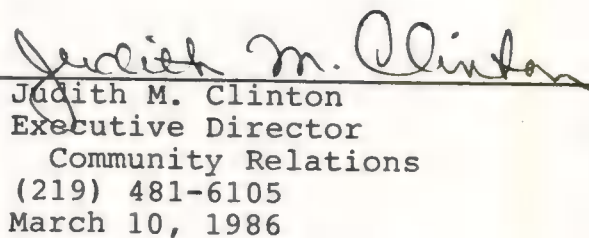 Judith M. Clinton
Judith M. Clinton
Executive Director
Community Relations
(219) 481-6105
March 10, 1986